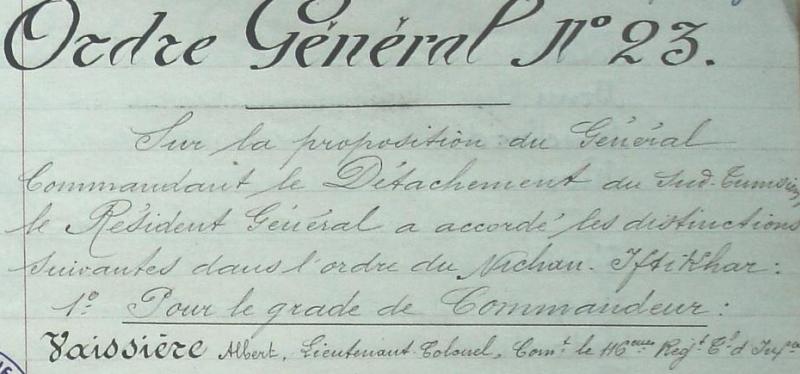 Ordre Général N° 23.
Sur la proposition du Général
Commandant le Détachement du Sud-Tunisien,
le Résident Général a accordé les distinctions
suivantes dans l'ordre du Nichan-Iftikhar:
1° Pour le grade de Commandeur:
Vaissière Albert, Lieutenant-Colonel, Com^t le 116^ème Rég^t T^l d'Inf^rie